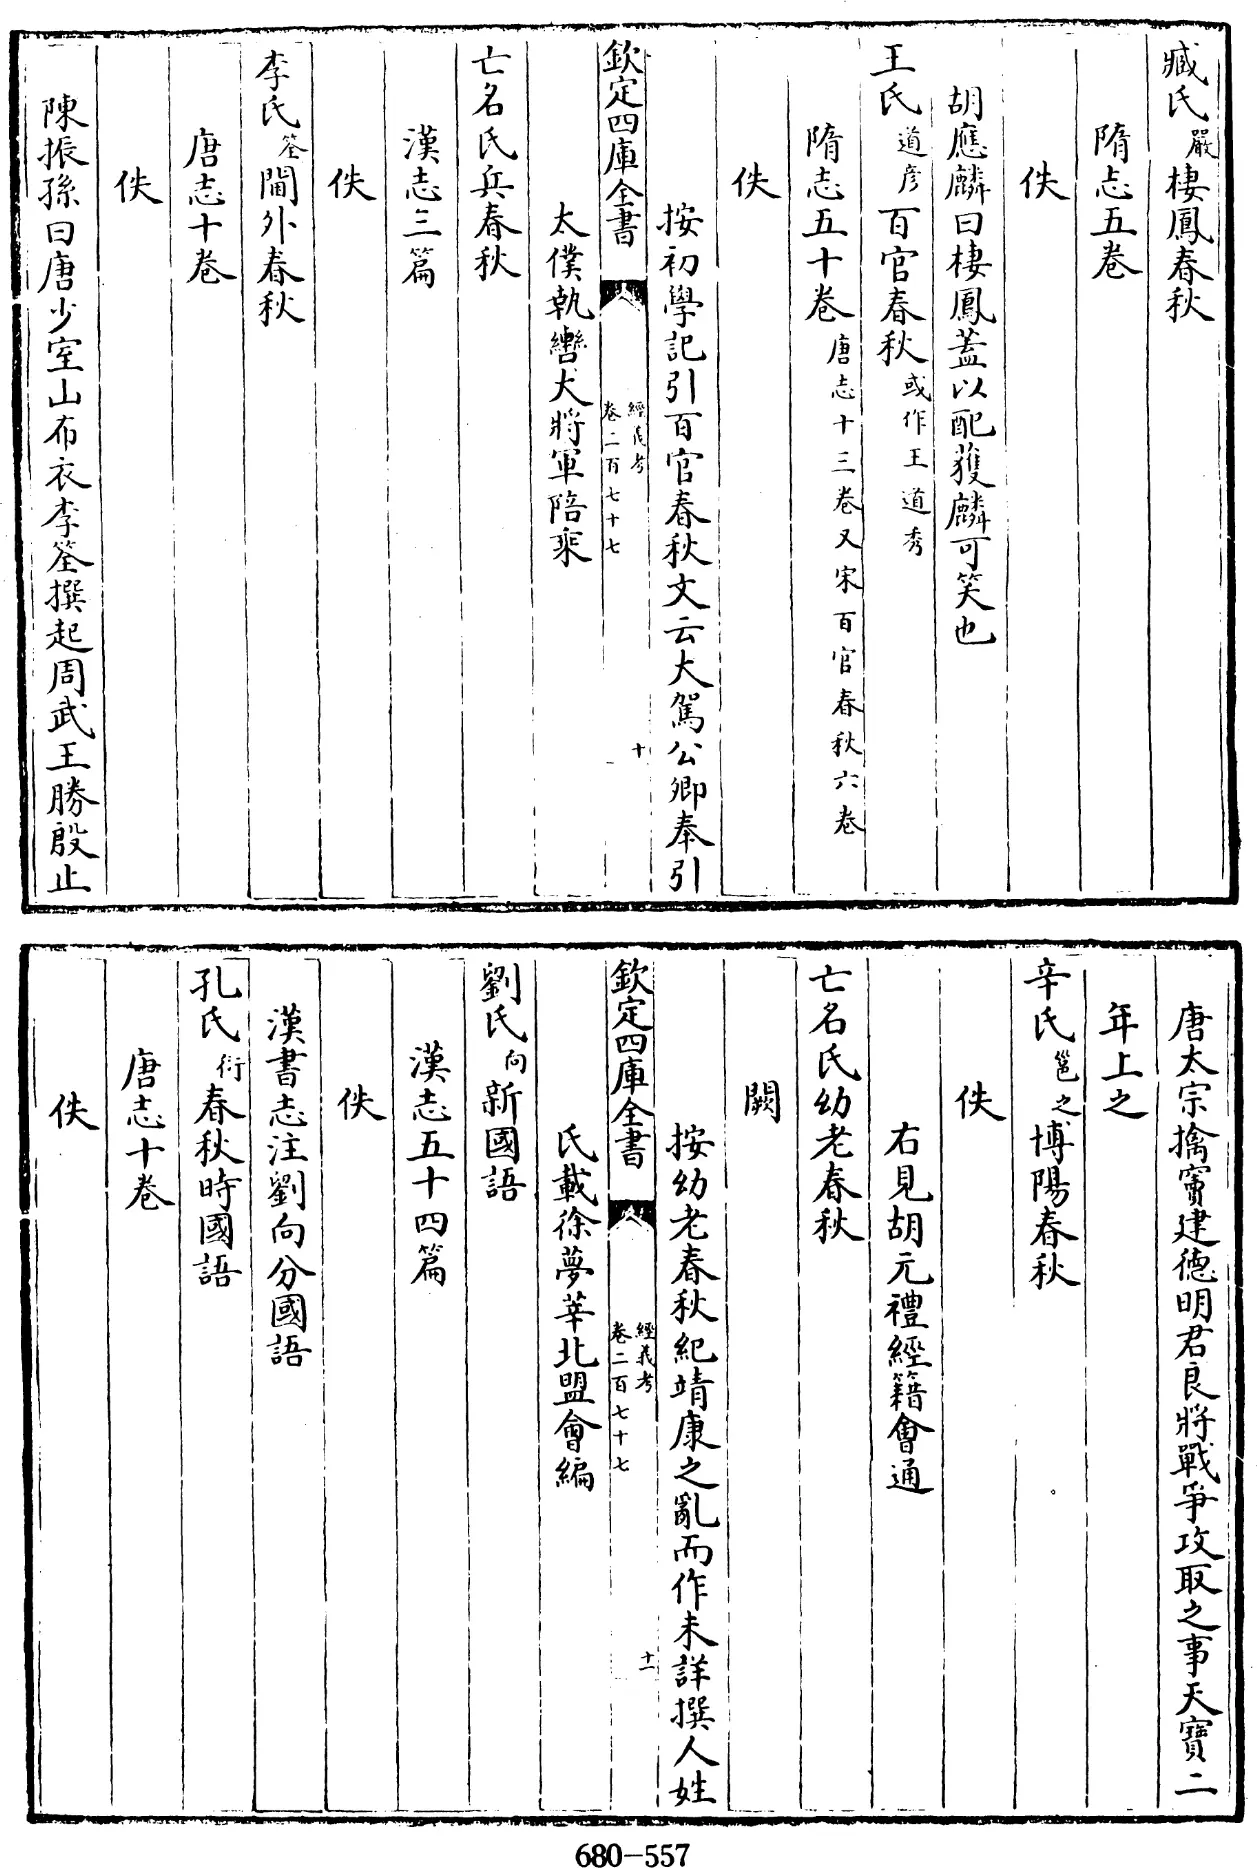 臧氏嚴棲鳳春秋
隋志五卷
佚
胡應麟曰棲鳳蓋以配獲麟可笑也
王氏道彦百官春秋或作王道秀
隋志五十卷唐志十三卷又宋百官春秋六卷
佚
按初學記引百官春秋文云大駕公卿奉引
欽定四庫全書
經義考
卷二百七十七
十
太僕執轡大將軍陪乘
亡名氏兵春秋
漢志三篇
佚
李氏筌閫外春秋
唐志十卷
佚
陳振孫曰唐少室山布衣李筌撰起周武王勝殷止
唐太宗擒竇建德明君良將戰爭攻取之事天寶二
年上之
辛氏邕之博陽春秋
佚
右見胡元禮經籍會通
亡名氏幼老春秋
闕
按幼老春秋紀靖康之亂而作未詳撰人姓
欽定四庫全書
經義考
卷二百七十七
十一
氏載徐夢莘北盟會編
劉氏向新國語
漢志五十四篇
佚
漢書志注劉向分國語
孔氏衍春秋時國語
唐志十卷
佚
680-557